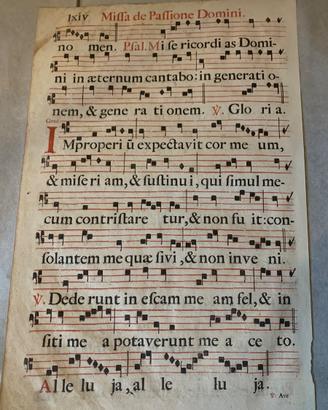 lxiv Missa de Passione Domini.
no men. Psal. Mi se ricordi as Domi-
ni in æternum cantabo: in generati o-
nem, & gene ra ti onem. ℣. Glo ri a.
Grad.
IMproperi ũ expectavit cor me um,
& mise ri am, & sustinu i, qui simul me-
cum contristare tur, & non fu it: con-
solantem me quæ sivi, & non inve ni.
℣. Dede runt in escam me am fel, & in
siti me a potaverunt me a ce to.
Al le lu ja, al le lu ja.
℣. Ave